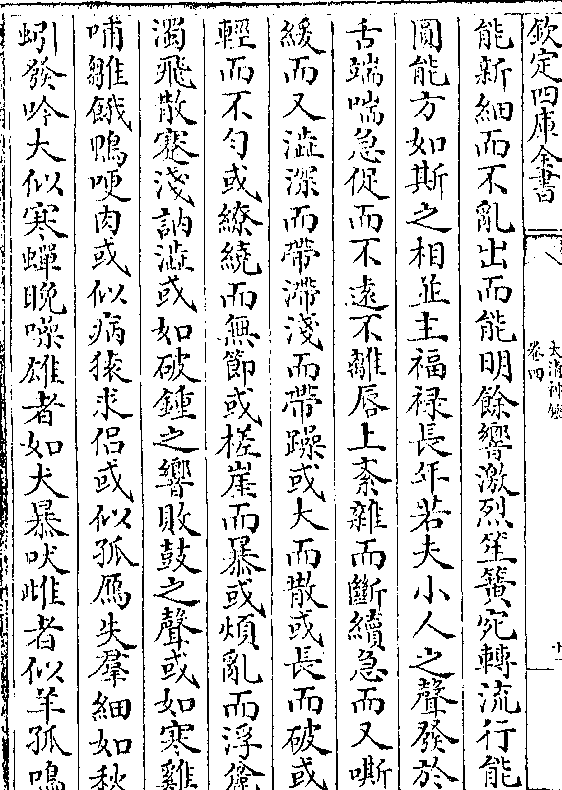 欽定四庫全書
太清神鑑
卷四
十一
能新細而不亂出而能明餘響激烈笙簧宛轉流行能
圓能方如斯之相並主福禄長年若夫小人之聲發於
舌端喘急促而不逺不離唇上紊雜而斷續急而又嘶
緩而又澁深而帶滯淺而帶躁或大而散或長而破或
輕而不匀或繚繞而無節或槎崖而暴或煩亂而浮
濁飛散蹇淺訥澁或如破鍾之響敗鼓之聲或如寒雞
哺雛餓鴨哽肉或似病猿求侣或似孤鴈失羣細如秋
蚓發吟大似寒蟬晚噪雄者如犬暴吠雌者似羊孤鳴